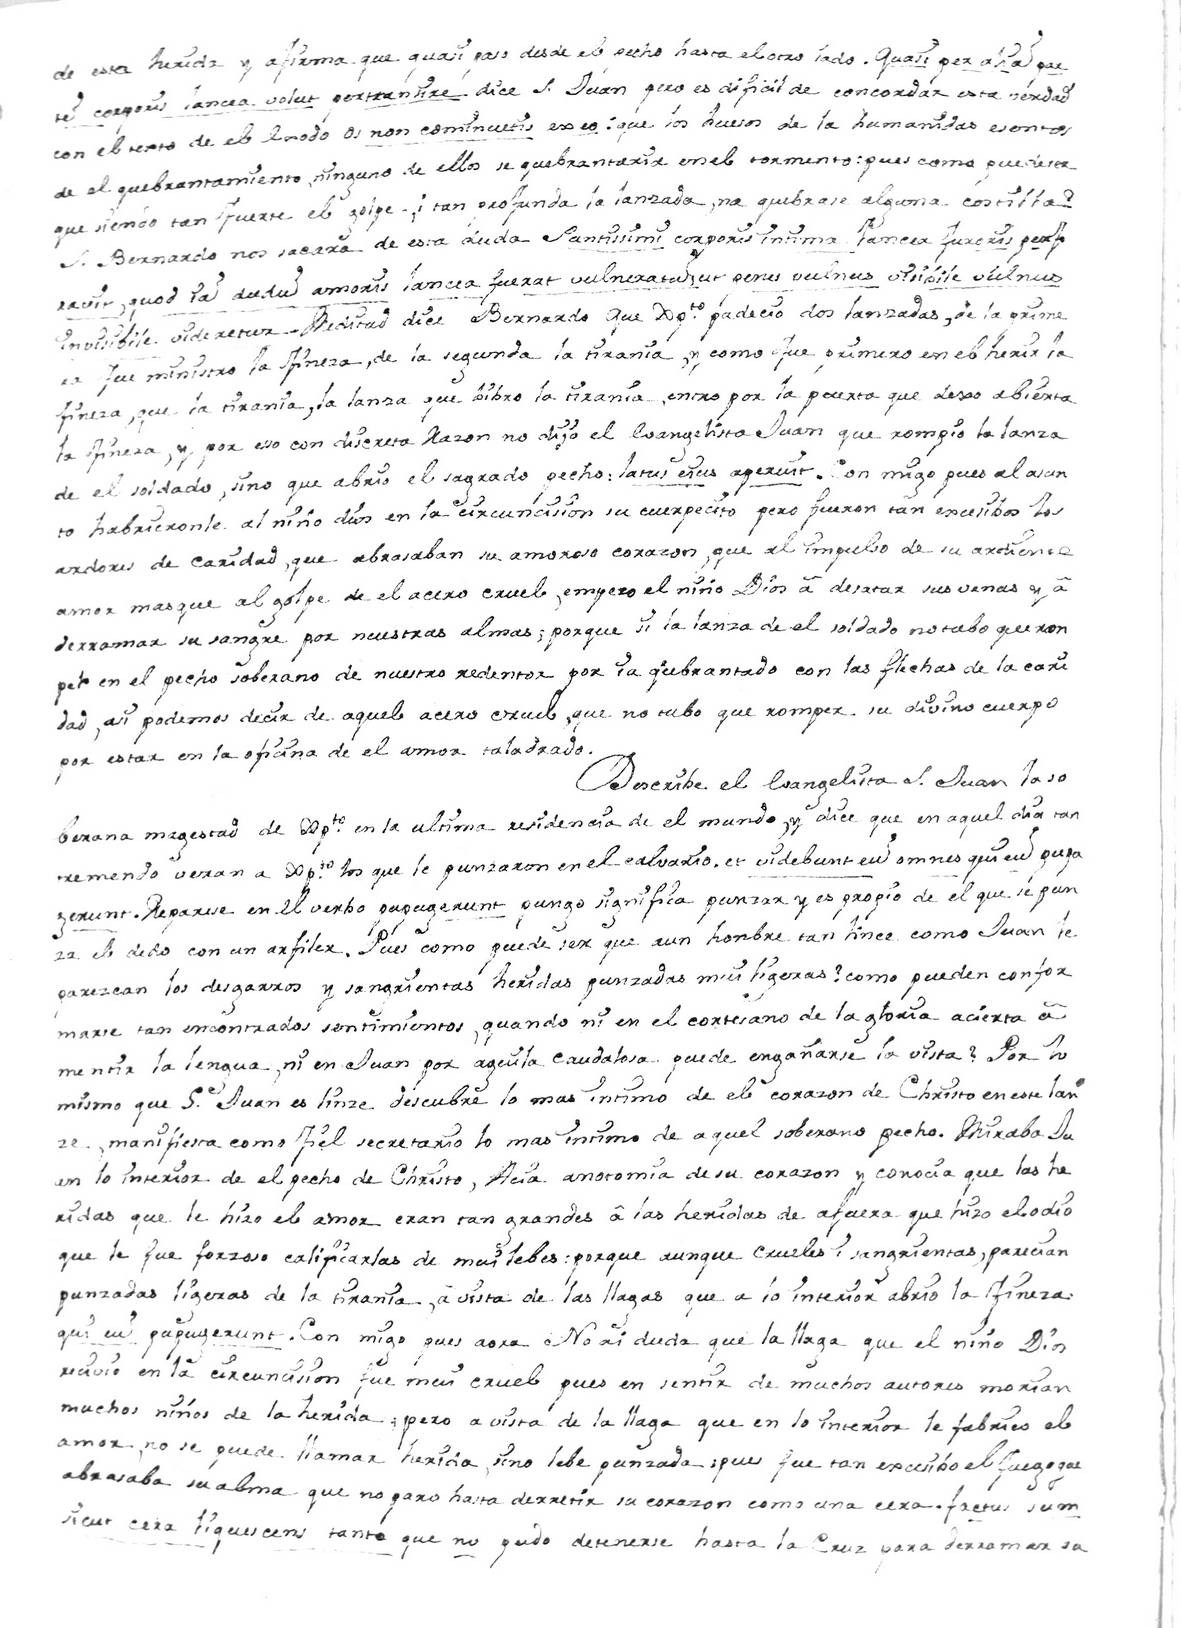 de esta herida y afirma que quasi paso desde el pecho hasta el otro lado. Quasi per aliā par
tē corporis lancea volut pertransire dice S. Juan pero es dificil de concordar esta verdad
con el texto de el Exodo os non cominuetis ex eo: que los huesos de la humanidad esentos
de el quebrantamiento, ninguno de ellos se quebrantaria en el tormento: pues como puede ser
que siendo tan fuerte el golpe, i tan profunda la lanzada, no quebrase alguna costilla?
S. Bernardo nos sacara de esta duda Santissimi corporis intima lancea furoris perfo
ravit, quod ia dudū amoris lancea fuerat vulneratū, ut penes vulnus visibile vulnus
invisibile videretur. Meditad dice Bernardo que Xp.to padecio dos lanzadas, de la prime
ra fue ministro la fineza, de la segunda la tirania, y como fue primero en el herir la
fineza, que la tirania, la lanza que vibro la tirania, entro por la puerta que dexo abierta
la fineza, y por eso con discreta Razon no dijo el Evangelista Juan que rompio la lanza
de el soldado, sino que abrio el sagrado pecho: latus ejus aperuit. Con migo pues al asun
to habrieronle al niño dios en la circuncision su cuerpecito pero fueron tan excesibos los
ardores de caridad, que abrasaban su amoroso corazon, que al impulso de su ardiente
amor mas que al golpe de el acero cruel, empezo el niño Dios ā desatar sus venas y ā
derramar su sangre por nuestras almas; porque si la lanza de el soldado no tubo que rom
per en el pecho soberano de nuestro redentor por ia quebrantado con las flechas de la cari
dad, asi podemos decir de aquel acero cruel, que no tubo que romper su divino cuerpo
por estar en la oficina de el amor taladrado.
Describe el Evangelista S. Juan la so
berana magestad de Xp.to en la ultima residencia de el mundo, y dice que en aquel dia tan
tremendo veran a Xp.to los que le punzaron en el calvario. et videbunt eū omnes qui eū pupu
gerunt. Reparese en el verbo pupugerunt pungo significa punzar y es propio de el que se pun
za el dedo con un arfiler. Pues como puede ser que aun honbre tan lince como Juan le
parezcan los desgarros y sangrientas heridas punzadas mui ligeras? como pueden confor
marse tan encontrados sentimientos, quando ni en el cortesano de la gloria acierta ā
mentir la lengua, ni en Juan por aguila caudalosa puede engañarse la vista? Por lo
mismo que S. Juan es linze descubre lo mas intimo de el corazon de Christo en este lan
ze, manifiesta como fiel secretario lo mas intimo de aquel soberano pecho. Miraba Ju
an lo interior de el pecho de Christo, Acia anotomia de su corazon y conocia que las he
ridas que le hizo el amor eran tan grandes ā las heridas de afuera que hizo el odio
que le fue forzoso calificarlas de mui lebes: porque aunque crueles i sangrientas, parecian
punzadas ligeras de la tirania, ā vista de las llagas que a lo interior abrio la fineza.
qui eū pupugerunt. Con migo pues aora No ai duda que la llaga que el niño Dios
recivio en la circuncision fue mui cruel pues en sentir de muchos autores morian
muchos niños de la herida; pero a vista de la llaga que en lo interior le fabrico el
amor, no se puede llamar herida, sino lebe punzada; pues fue tan excesibo el fuego que
abrasaba su alma que no paro hasta derretir su corazon como una cera. factus sum
sicut cera liquescens tanto que no pudo detenerse hasta la Cruz para derramar su